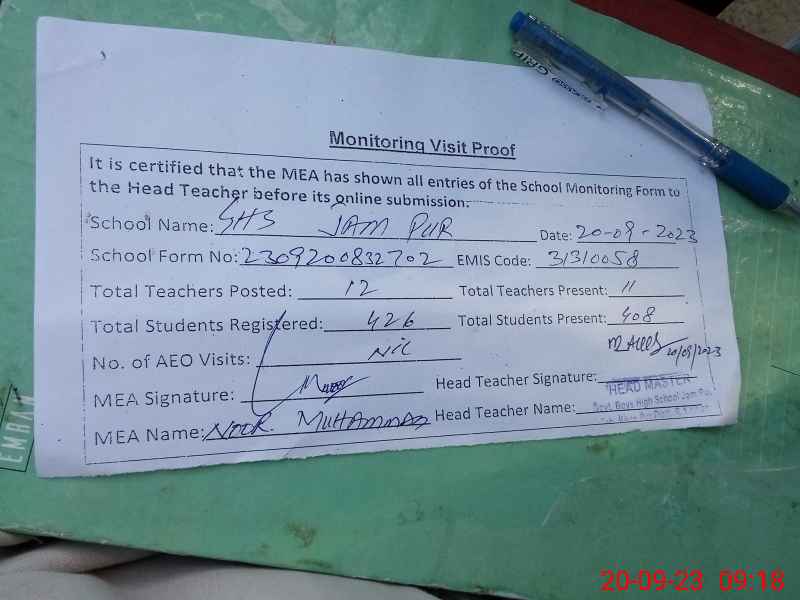 Monitoring Visit Proof
It is certified that the MEA has shown all entries of the School Monitoring Form to
the Head Teacher before its online submission.
School Name: GHS JAM PUR Date: 20-09-2023
School Form No: 2309200832702 EMIS Code: 31310058
Total Teachers Posted: 12 Total Teachers Present: 11
Total Students Registered: 426 Total Students Present: 408
No. of AEO Visits: Nil 20/09/2023
MEA Signature: Head Teacher Signature:
HEAD MASTER
Govt. Boys High School Jam Pur
MEA Name: NOOR MUHAMMAD Head Teacher Name:
GRIP
EMBA
20-09-23 09:18